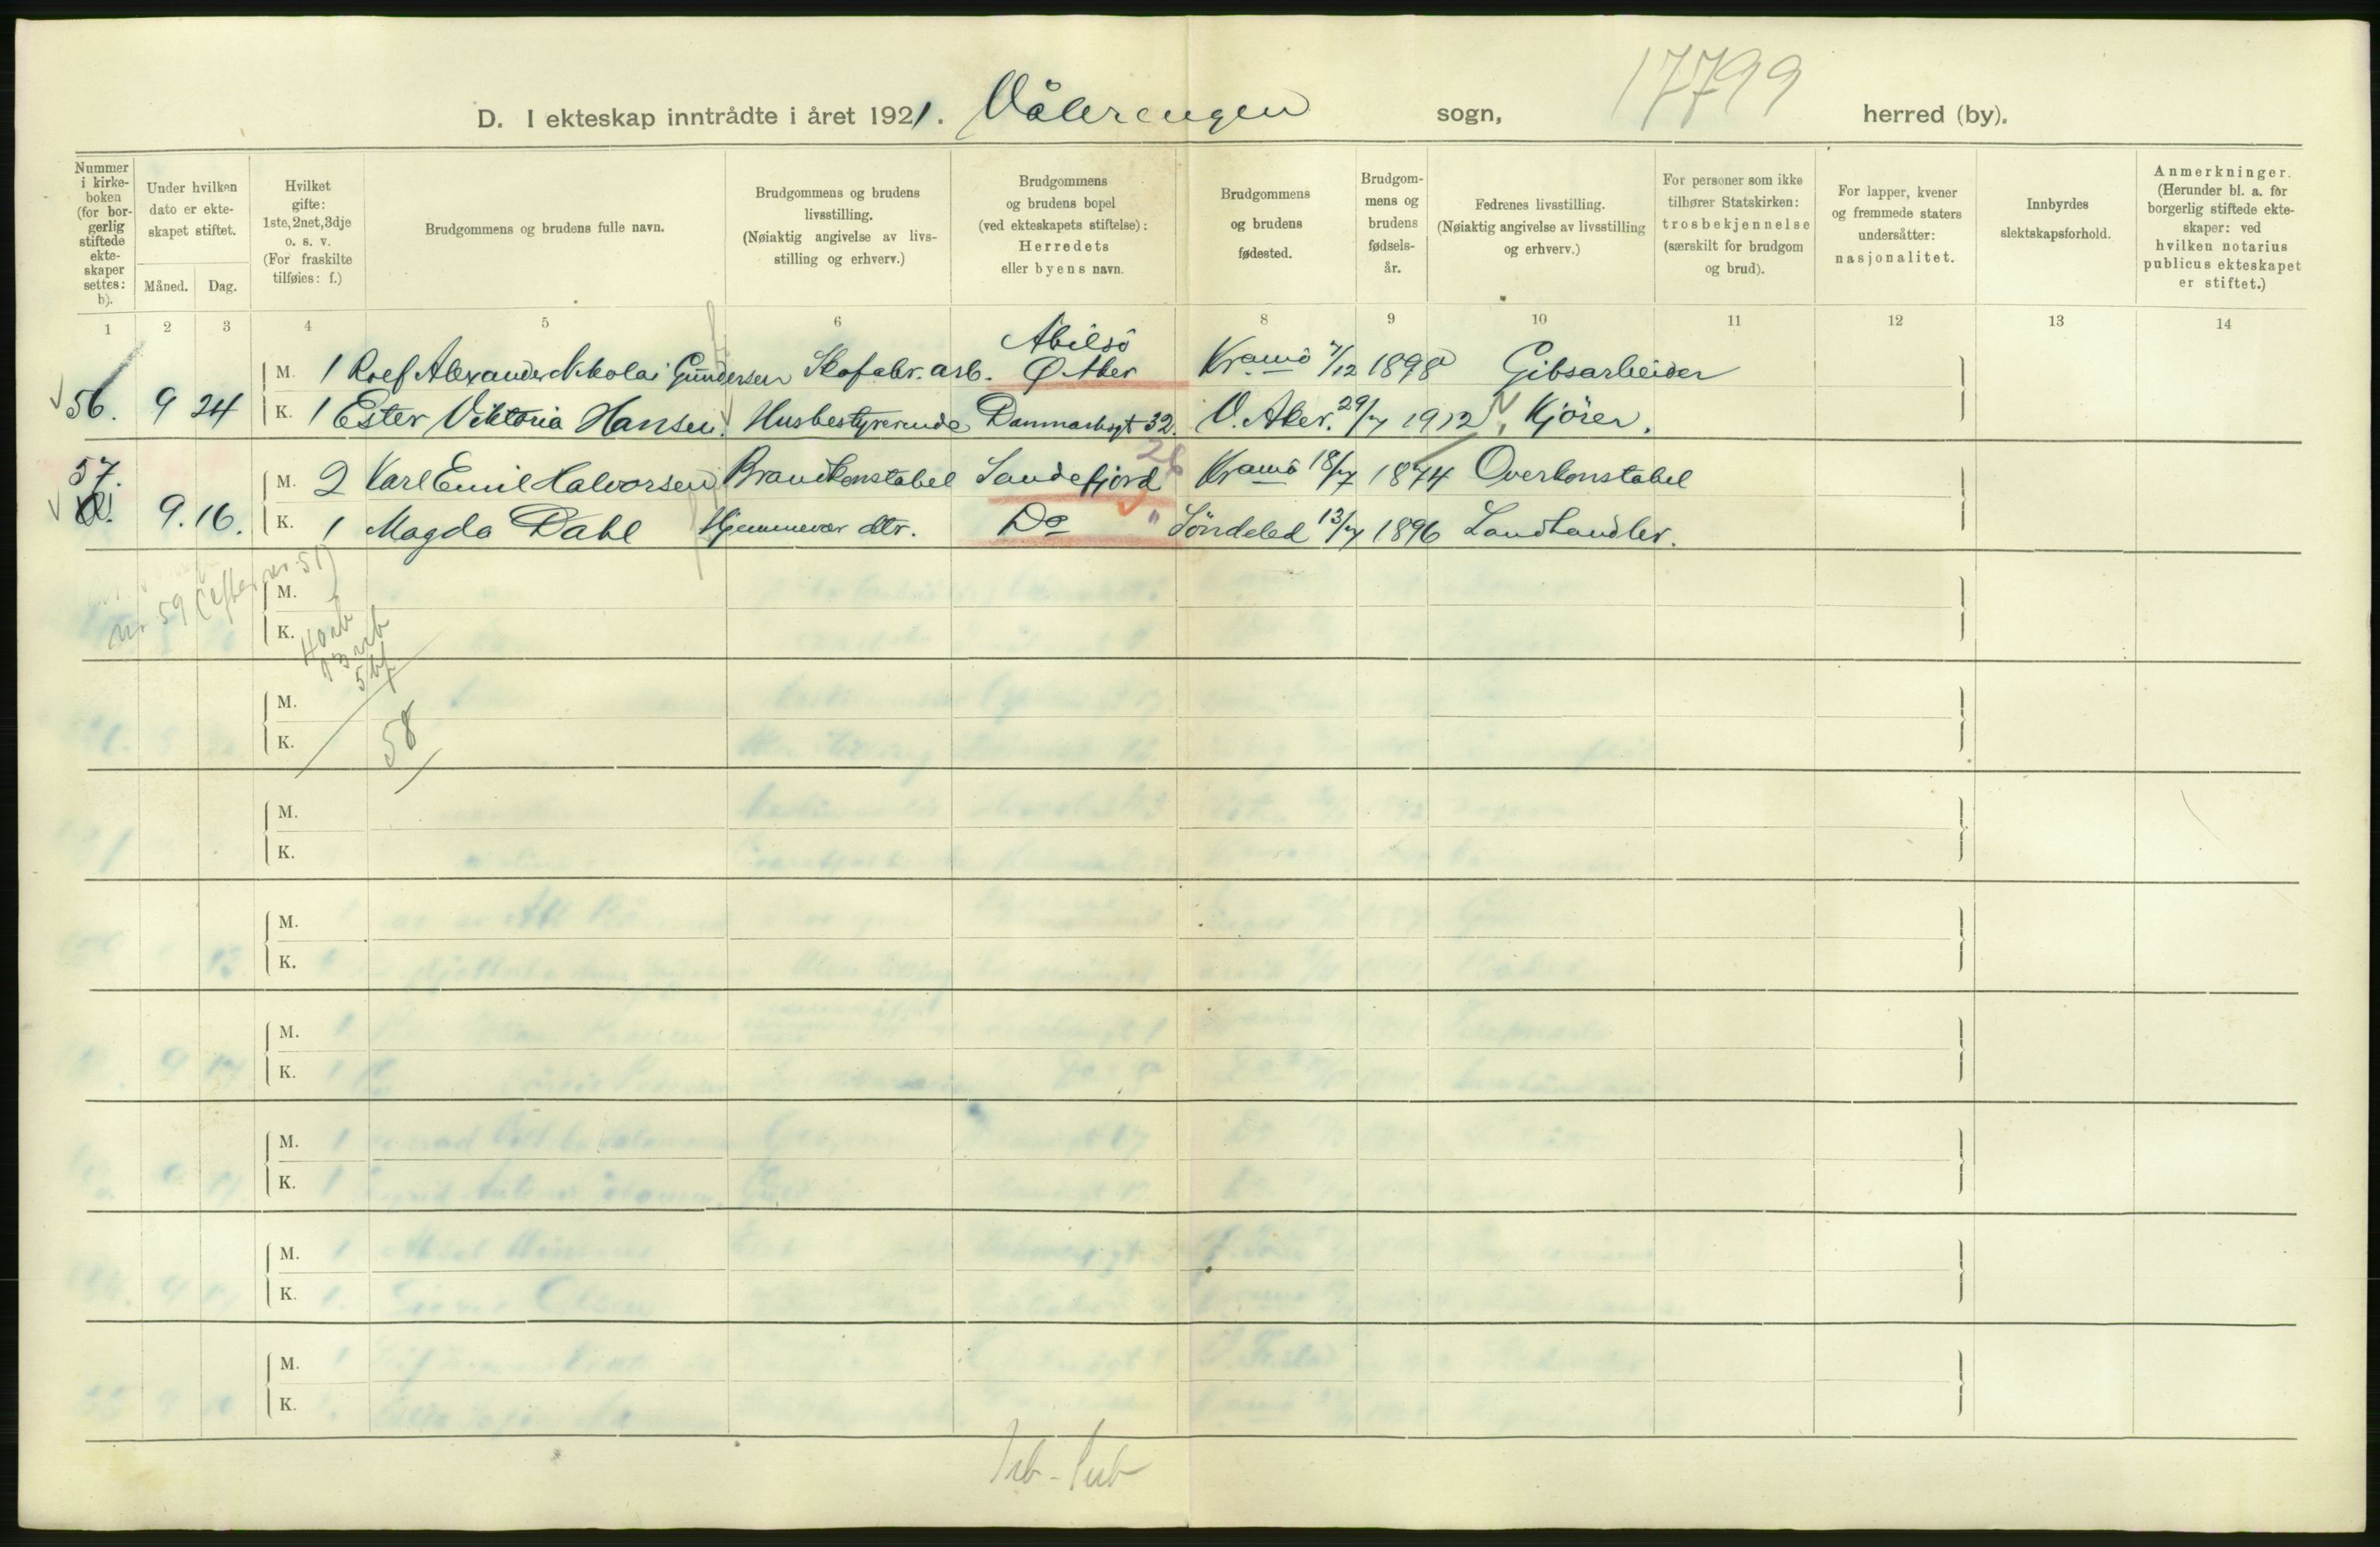 17799
D. I ekteskap inntrådte i året 1921. Vålerengen sogn, herred (by).
Nummer i kirke- boken (for bor- gerlig stiftede ekte- skaper settes: b).
Under hvilken dato er ekte- skapet stiftet.
Måned. Dag.
Hvilket gifte: 1ste, 2net, 3dje o. s. v. (For fraskilte tilføies: f.)
Brudgommens og brudens fulle navn.
Brudgommens og brudens livsstilling. (Nøiaktig angivelse av livs- stilling og erhverv.)
Brudgommens og brudens bopel (ved ekteskapets stiftelse): Herredets eller byens navn.
Brudgommens og brudens fødested.
Brudgom- mens og brudens fødsels- år.
Fedrenes livsstilling. (Nøiaktig angivelse av livsstilling og erhverv.)
For personer som ikke tilhører Statskirken: trosbekjennelse (særskilt for brudgom og brud).
For lapper, kvener og fremmede staters undersåtter: nasjonalitet.
Innbyrdes slektskapsforhold.
Anmerkninger. (Herunder bl. a. før borgerlig stiftede ekte- skaper: ved hvilken notarius publicus ekteskapet er stiftet.)
1 2 3 4 5 6 8 9 10 11 12 13 14
Abilsö
M. 1 Rolf Alexander Nikolai Gundersen Skofabr. arb. Ø. Aker Kr.a 7/12 1898 Gibsarbeider
56. 9 24 K. 1 Ester Viktoria Hansen. Husbestyrerinde Danmarksgt 32. V. Aker. 29/7 1912 Kjörer.
57. M. 2 Karl Emil Halvorsen Brandkonstabel Sandefjord 26 18/7 1874 Overkonstabel
9. 16. K. 1 Magda Dahl Hjemmevær dtr. Do " Söndeled 13/7 1896 Landhandler.
nr 59 (efter nr 51)
M.
K.
58
M.
K.
M.
K.
M.
K.
M.
K.
M.
K.
M.
K.
M.
K.